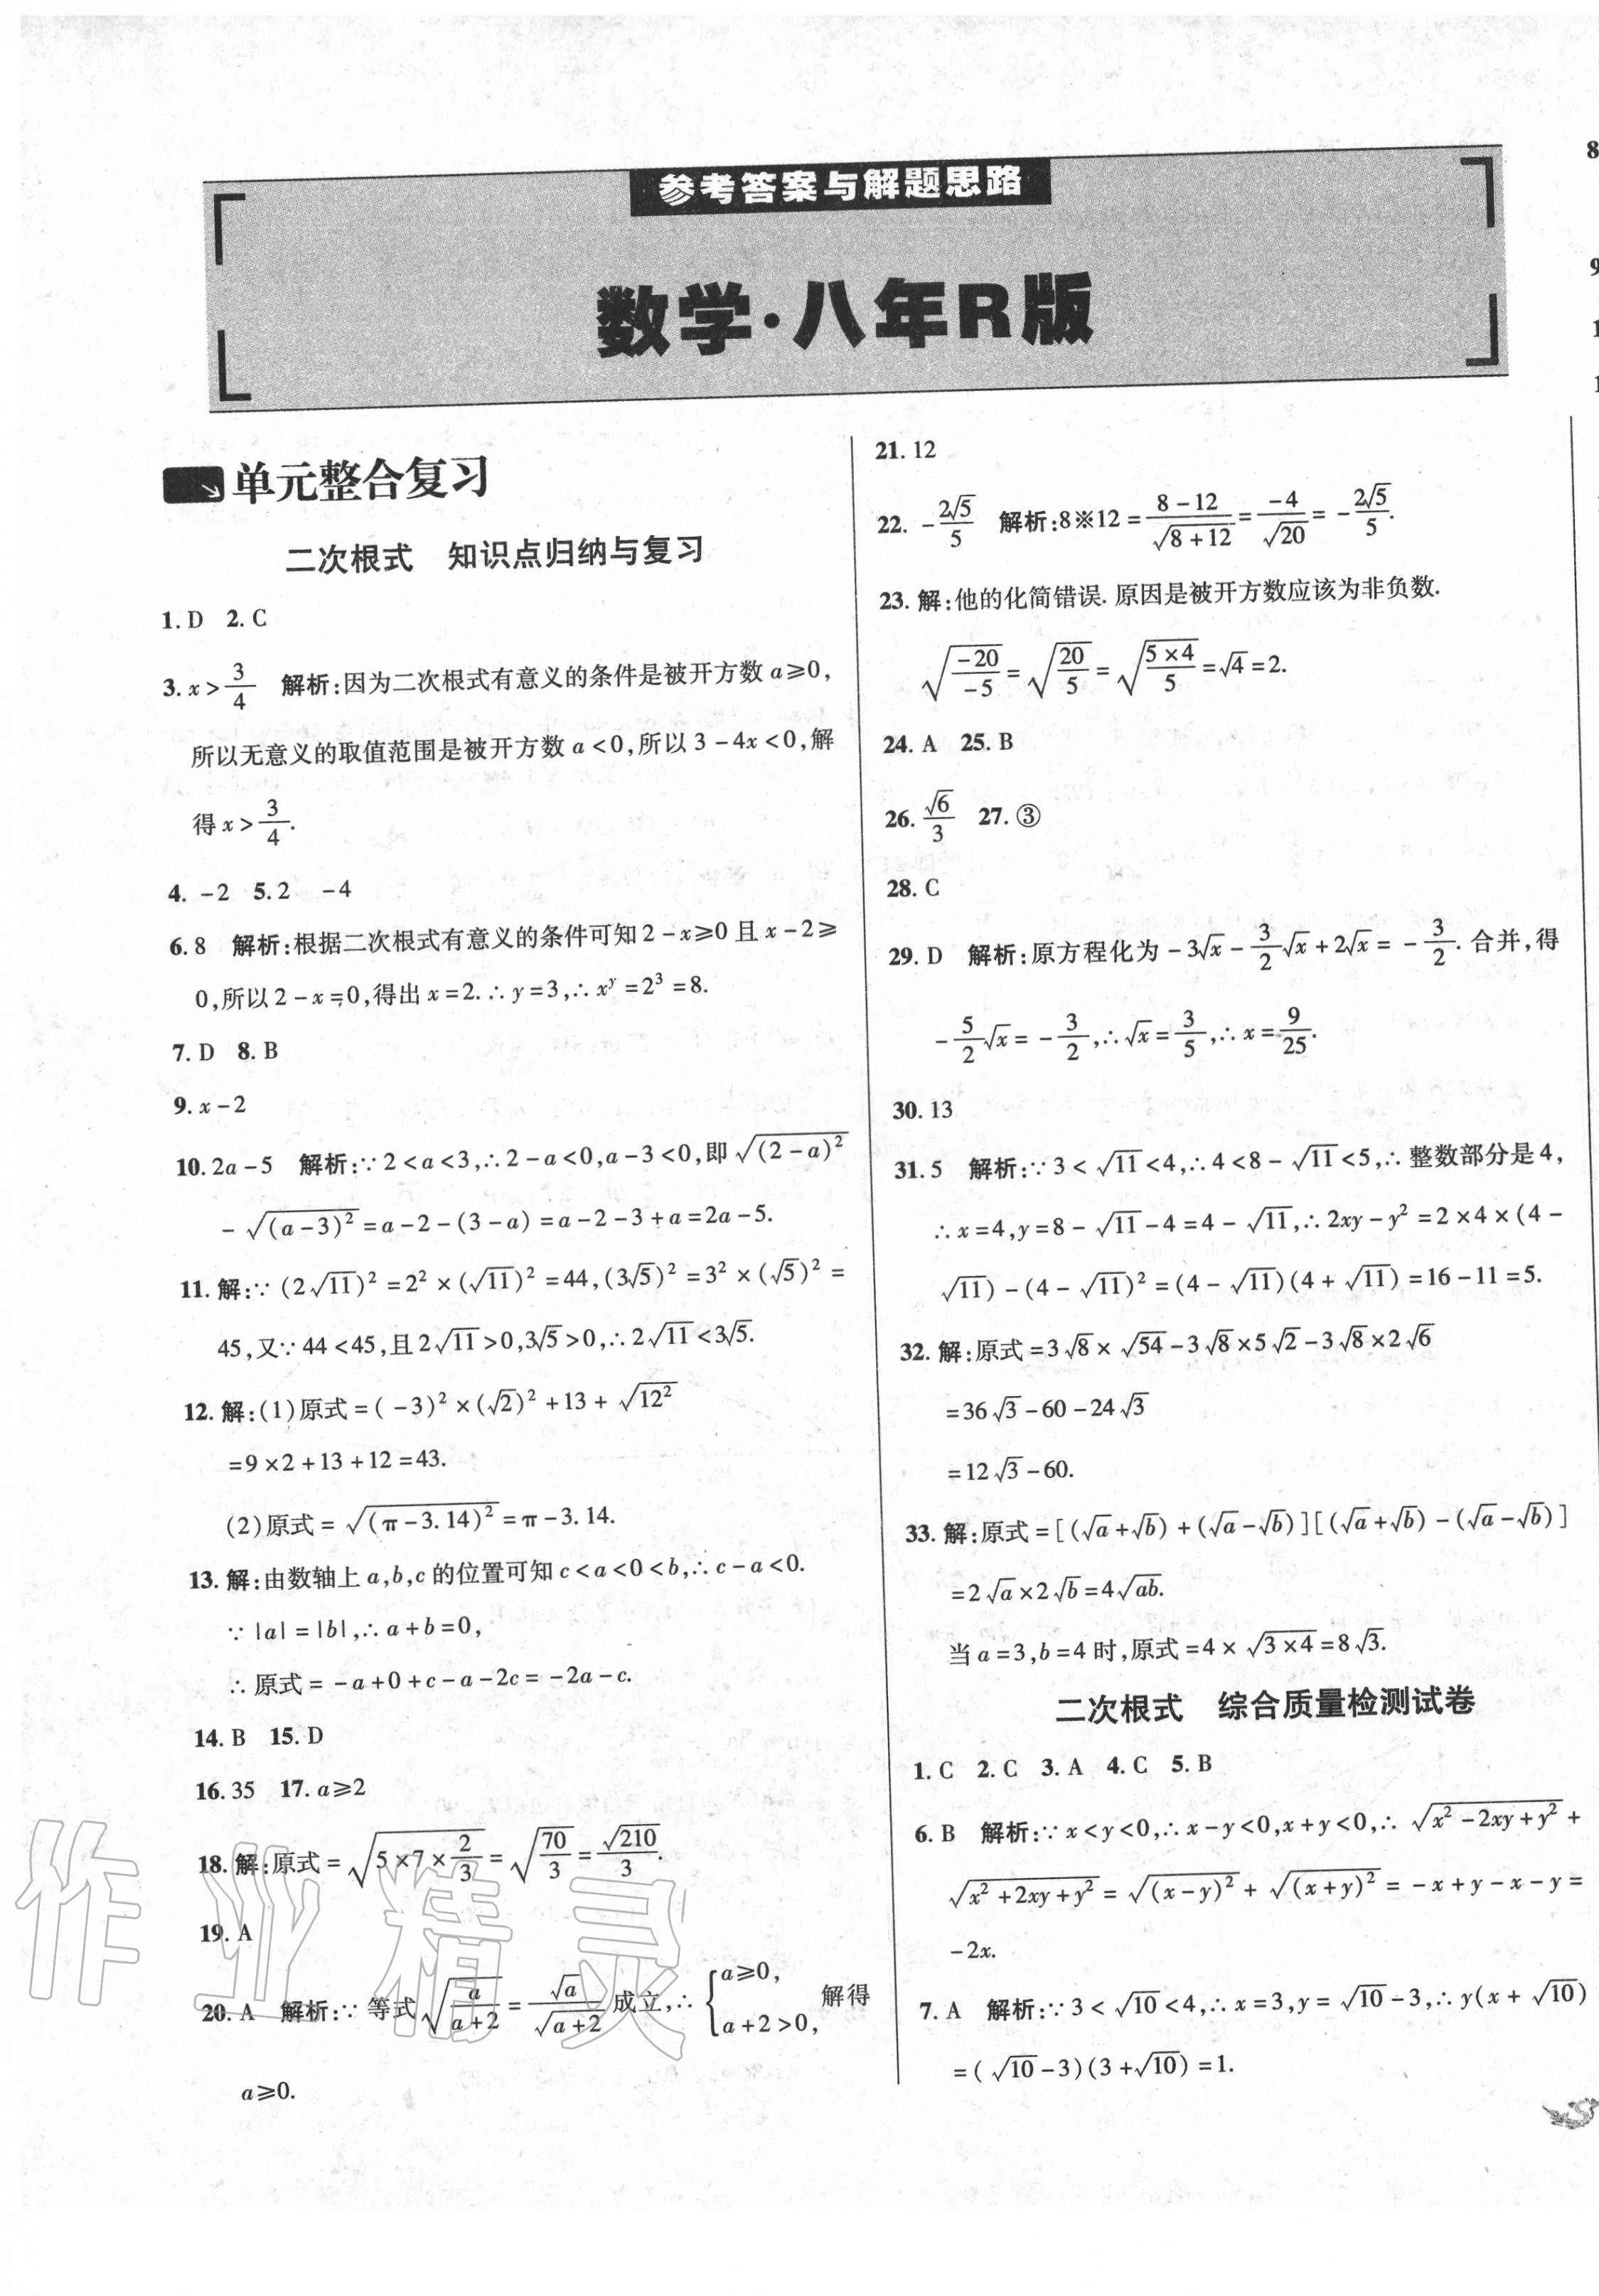 参考答案与解题思路
数学·八年R版
单元整合复习
二次根式　知识点归纳与复习
1. D　2. C
3. x>3/4　解析:因为二次根式有意义的条件是被开方数 a≥0,
所以无意义的取值范围是被开方数 a<0,所以 3-4x<0,解
得 x>3/4.
4. -2　5. 2　-4
6. 8　解析:根据二次根式有意义的条件可知 2-x≥0 且 x-2≥
0,所以 2-x=0,得出 x=2.∴y=3,∴x^y=2³=8.
7. D　8. B
9. x-2
10. 2a-5　解析:∵2<a<3,∴2-a<0,a-3<0,即√((2-a)²)
-√((a-3)²)=a-2-(3-a)=a-2-3+a=2a-5.
11. 解:∵(2√11)²=2²×(√11)²=44,(3√5)²=3²×(√5)²=
45,又∵44<45,且2√11>0,3√5>0,∴2√11<3√5.
12. 解:(1)原式=(-3)²×(√2)²+13+√(12²)
=9×2+13+12=43.
(2)原式=√((π-3.14)²)=π-3.14.
13. 解:由数轴上 a,b,c 的位置可知 c<a<0<b,∴c-a<0.
∵|a|=|b|,∴a+b=0,
∴原式=-a+0+c-a-2c=-2a-c.
14. B　15. D
16. 35　17. a≥2
18. 解:原式=√(5×7×2/3)=√(70/3)=√210/3.
19. A
20. A　解析:∵等式√(a/(a+2))=√a/√(a+2)成立,∴{a≥0, a+2>0, 解得
a≥0.
21. 12
22. -2√5/5　解析:8※12=(8-12)/√(8+12)=-4/√20=-2√5/5.
23. 解:他的化简错误.原因是被开方数应该为非负数.
√(-20/-5)=√(20/5)=√(5×4/5)=√4=2.
24. A　25. B
26. √6/3　27. ③
28. C
29. D　解析:原方程化为-3√x-3/2√x+2√x=-3/2.合并,得
-5/2√x=-3/2,∴√x=3/5,∴x=9/25.
30. 13
31. 5　解析:∵3<√11<4,∴4<8-√11<5,∴整数部分是4,
∴x=4,y=8-√11-4=4-√11,∴2xy-y²=2×4×(4-
√11)-(4-√11)²=(4-√11)(4+√11)=16-11=5.
32. 解:原式=3√8×√54-3√8×5√2-3√8×2√6
=36√3-60-24√3
=12√3-60.
33. 解:原式=[(√a+√b)+(√a-√b)][(√a+√b)-(√a-√b)]
=2√a×2√b=4√(ab).
当 a=3,b=4 时,原式=4×√(3×4)=8√3.
二次根式　综合质量检测试卷
1. C　2. C　3. A　4. C　5. B
6. B　解析:∵x<y<0,∴x-y<0,x+y<0,∴√(x²-2xy+y²)+
√(x²+2xy+y²)=√((x-y)²)+√((x+y)²)=-x+y-x-y=
-2x.
7. A　解析:∵3<√10<4,∴x=3,y=√10-3,∴y(x+√10)
=(√10-3)(3+√10)=1.
8
9
1
1
作业精灵